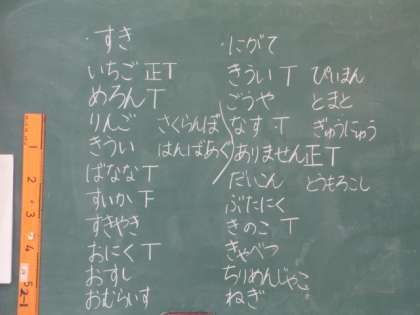 ・すき
いちご 正T
めろん T
りんご さくらんぼ
きうい はんばあぐ
ばなな T
すいか F
すきやき
おにく T
おすし
おむらいす
・にがて
きうい T ぴいまん
ごうや とまと
なす T ぎゅうにゅう
ありません 正T
だいこん とうもろこし
ぶたにく
きのこ T
きゃべつ
ちりめんじゃこ
ねぎ
1
2
3
4
5
2-1